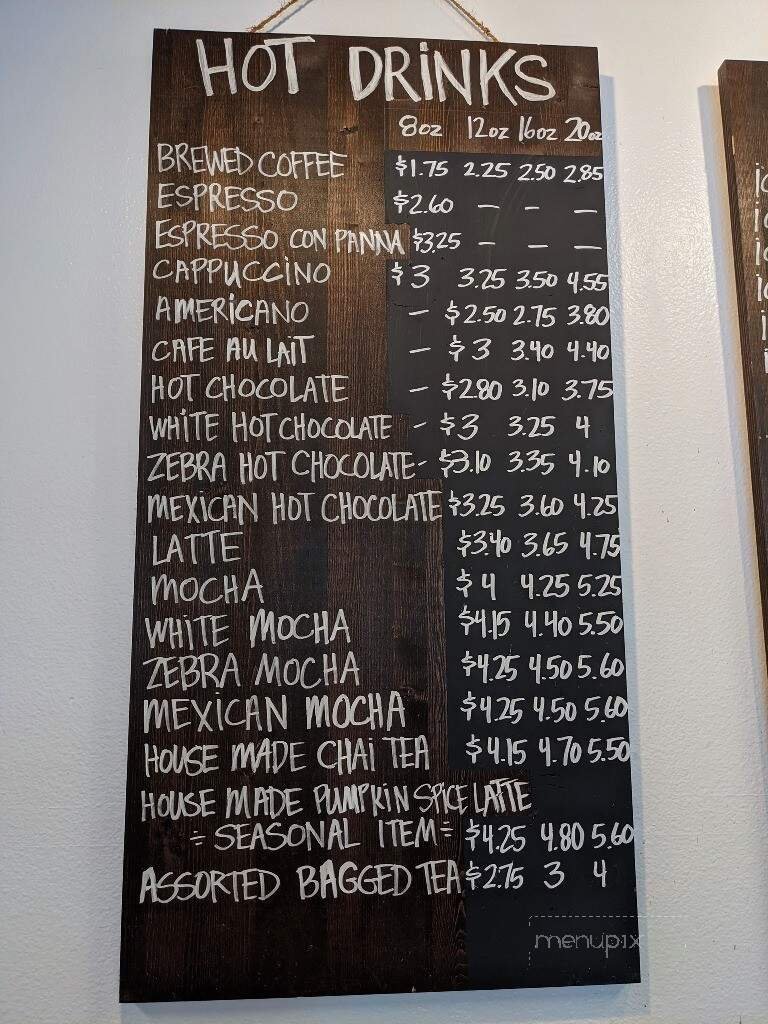 HOT DRINKS
8oz 12oz 16oz 20oz
BREWED COFFEE $1.75 2.25 2.50 2.85
ESPRESSO $2.60 — — —
ESPRESSO CON PANNA $3.25 — — —
CAPPUCCINO $3 3.25 3.50 4.55
AMERICANO — $2.50 2.75 3.80
CAFE AU LAIT — $3 3.40 4.40
HOT CHOCOLATE — $2.80 3.10 3.75
WHITE HOT CHOCOLATE - $3 3.25 4
ZEBRA HOT CHOCOLATE - $3.10 3.35 4.10
MEXICAN HOT CHOCOLATE $3.25 3.60 4.25
LATTE $3.40 3.65 4.75
MOCHA $4 4.25 5.25
WHITE MOCHA $4.15 4.40 5.50
ZEBRA MOCHA $4.25 4.50 5.60
MEXICAN MOCHA $4.25 4.50 5.60
HOUSE MADE CHAI TEA $4.15 4.70 5.50
HOUSE MADE PUMPKIN SPICE LATTE
÷ SEASONAL ITEM ÷ $4.25 4.80 5.60
ASSORTED BAGGED TEA $2.75 3 4
menupix